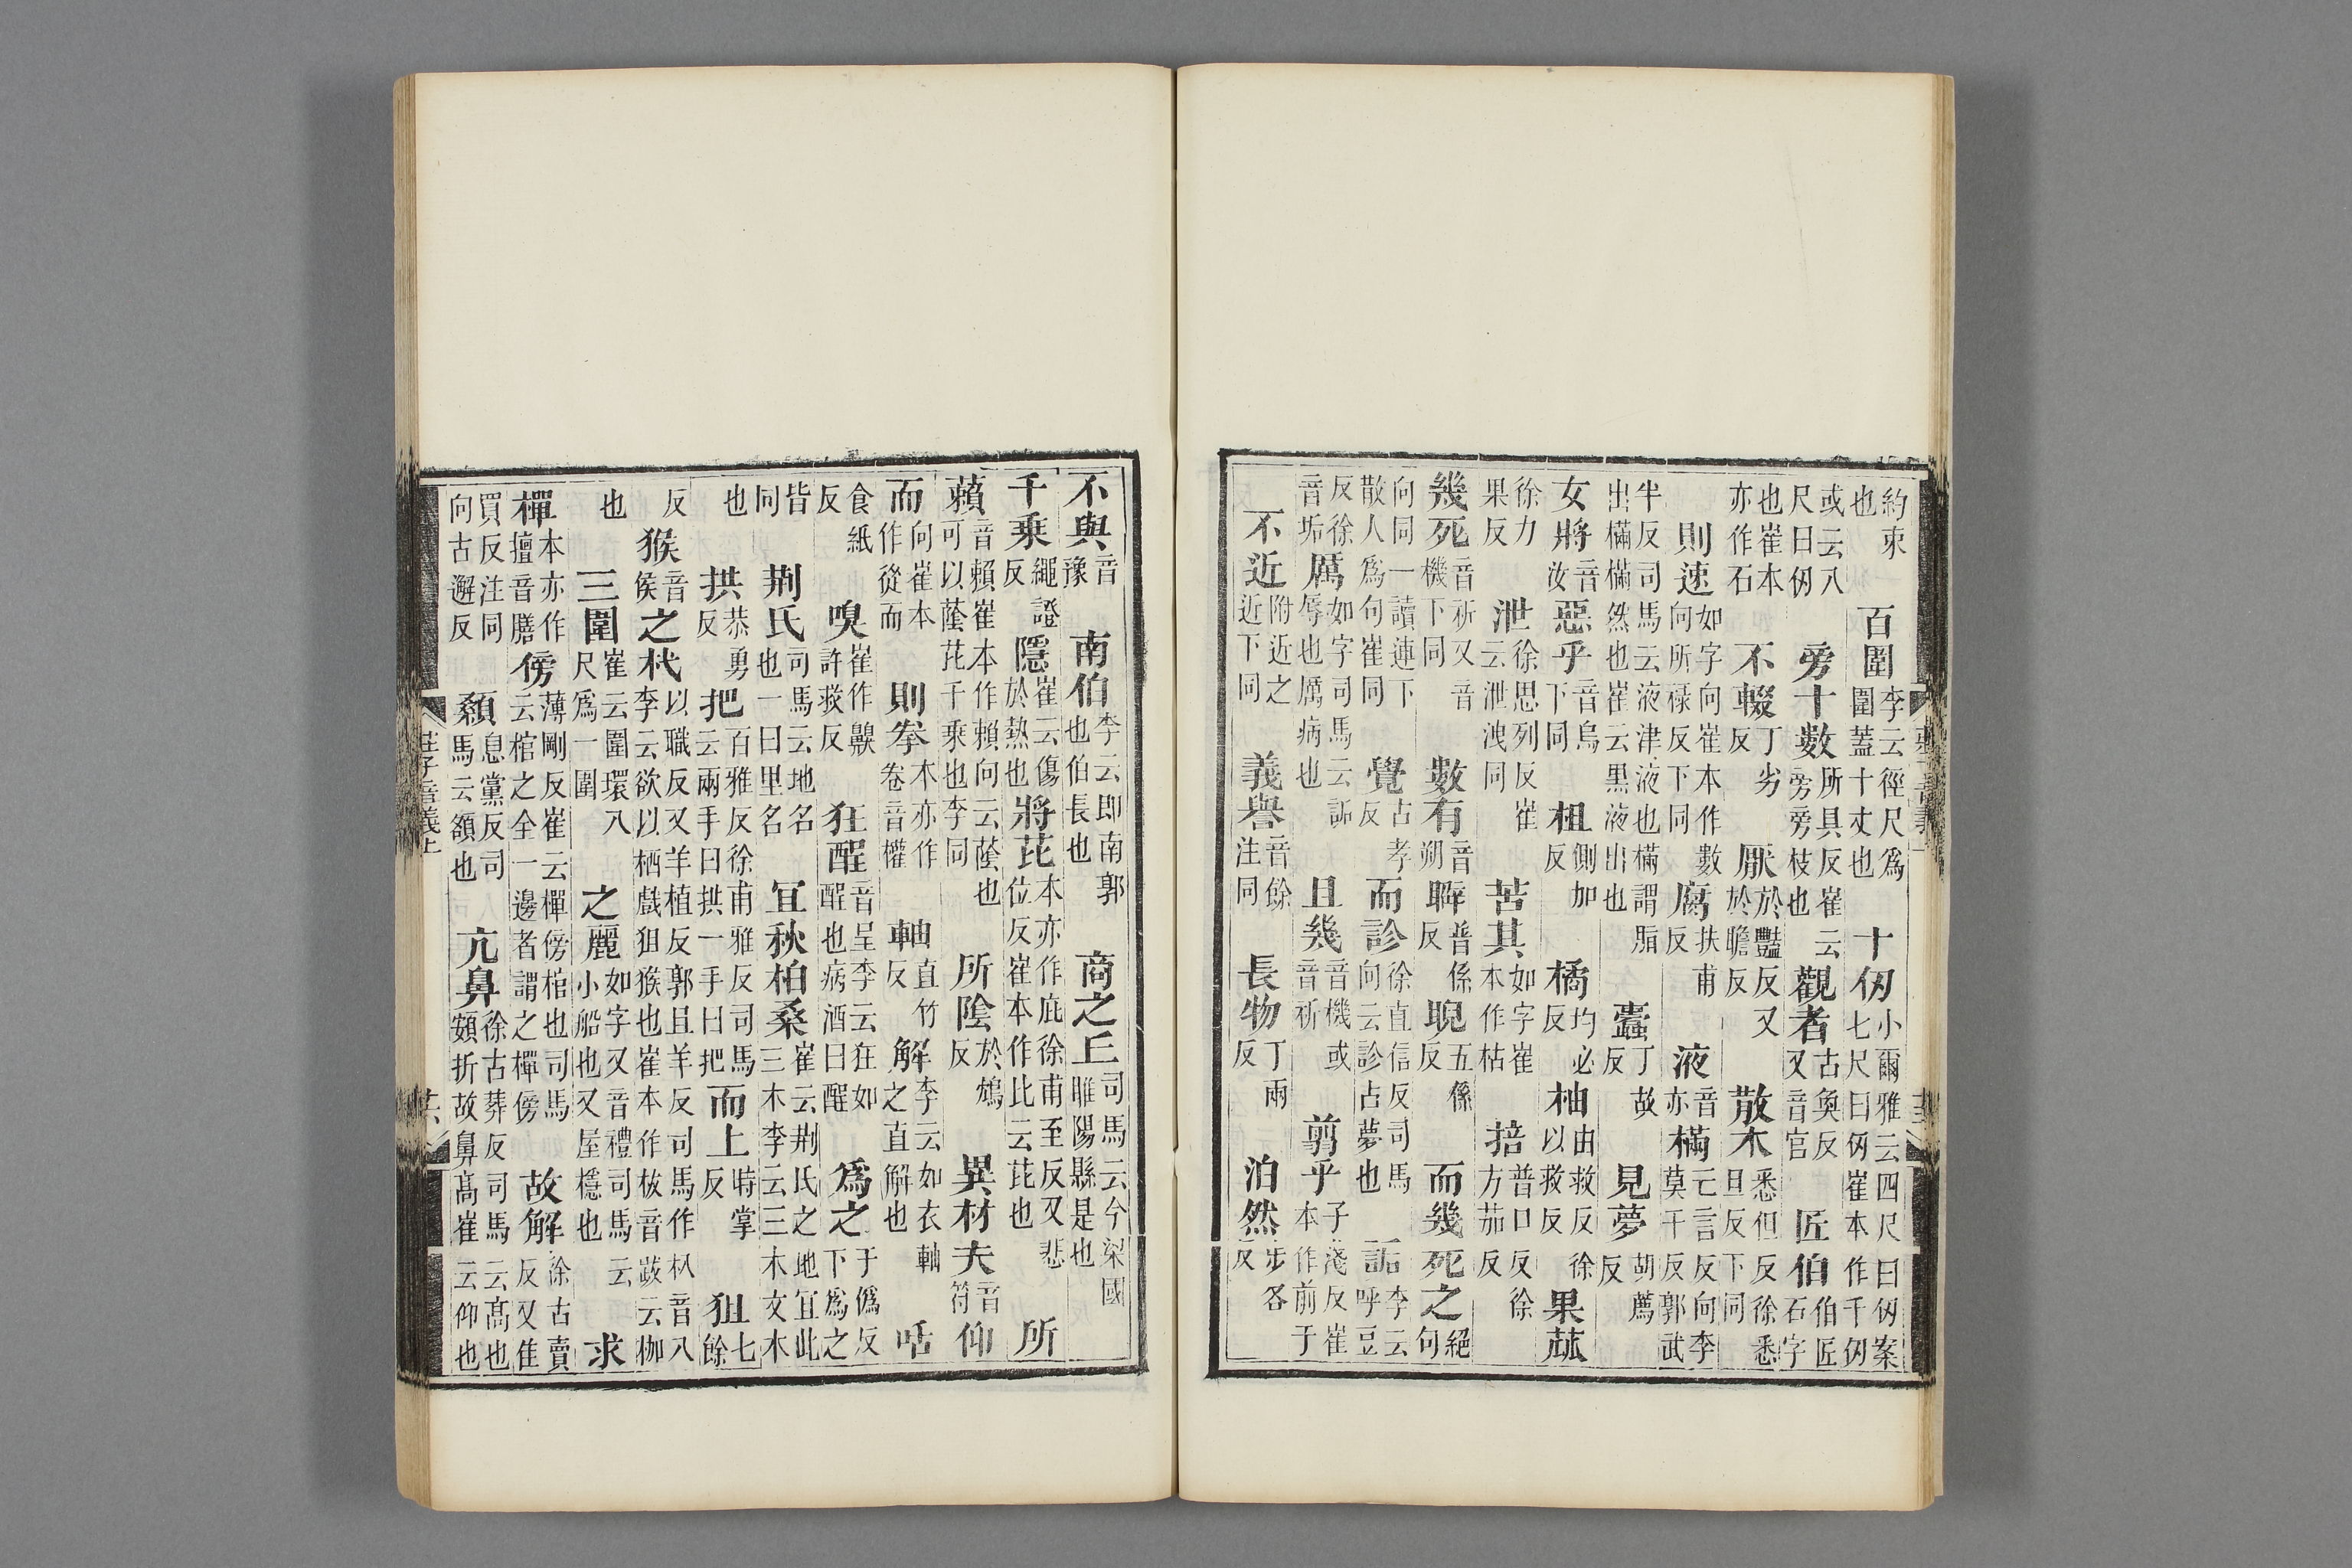 約束也百圍李云徑尺爲圍蓋十丈也十仞小爾雅云四尺曰仞案七尺曰仞崔本作千仞
或云八尺曰仞旁十數所具反崔云旁旁枝也觀者古奐反又音官匠伯伯匠石字
也崔本亦作石不輟丁劣反厭於豔反又於瞻反散木悉但反徐悉旦反下同
則速如字向崔本作數向所祿反下同腐扶甫反液音亦樠亡言反向李莫干反郭武
半反司馬云液津液也樠謂脂出樠樠然也崔云黑液出也蠹丁故反見夢胡薦反
女將音汝惡乎音烏下同柤側加反橘均必反柚由救反徐以救反果蓏
徐力果反泄徐思列反崔云泄洩同苦其如字崔本作枯掊普口反徐方茄反
幾死音祈又音機下同數有音朔睥普係反睨五係反而幾死之絕句
向同一讀連下散人爲句崔同覺古孝反而診徐直信反司馬向云診占夢也詬李云呼豆
反徐音垢厲如字司馬云詬辱也厲病也且幾音機或音祈翦乎子淺反崔本作前于
不近附近之近下同義譽音餘注同長物丁兩反泊然步各反
不與音豫南伯李云卽南郭也伯長也商之丘司馬云今梁國睢陽縣是也
千乘繩證反隱崔云傷於熱也將芘本亦作庇徐甫至反又悲位反崔本作比云芘也所
藾音賴崔本作賴向云蔭也可以蔭芘千乘也李同所陰於鴆反異材夫音符仰
而向崔本作從而則拳本亦作卷音權軸直竹反解李云如衣軸之直解也咶
食紙反嗅崔作齅許救反狂酲音呈李云狂如酲也病酒曰酲爲之于僞反下爲之
皆同荆氏司馬云地名也一曰里名宜秋柏桑崔云荆氏之地宜此三木李云三木文木
也拱恭勇反把百雅反徐甫雅反司馬云兩手曰拱一手曰把而上時掌反狙七餘
反猴音侯之杙以職反又羊植反郭且羊反司馬作杁音八李云欲以栖戲狙猴也崔本作柭音跋云枷
也三圍崔云圍環八尺爲一圍之麗如字又音禮司馬云小船也又屋檼也求
樿本亦作擅音膳傍薄剛反崔云樿傍棺也司馬云棺之全一邊者謂之樿傍故解徐古賣反又佳
買反注同向古邂反顙息黨反司馬云額也亢鼻徐古葬反司馬云高也頞折故鼻高崔云仰也
莊子音義上